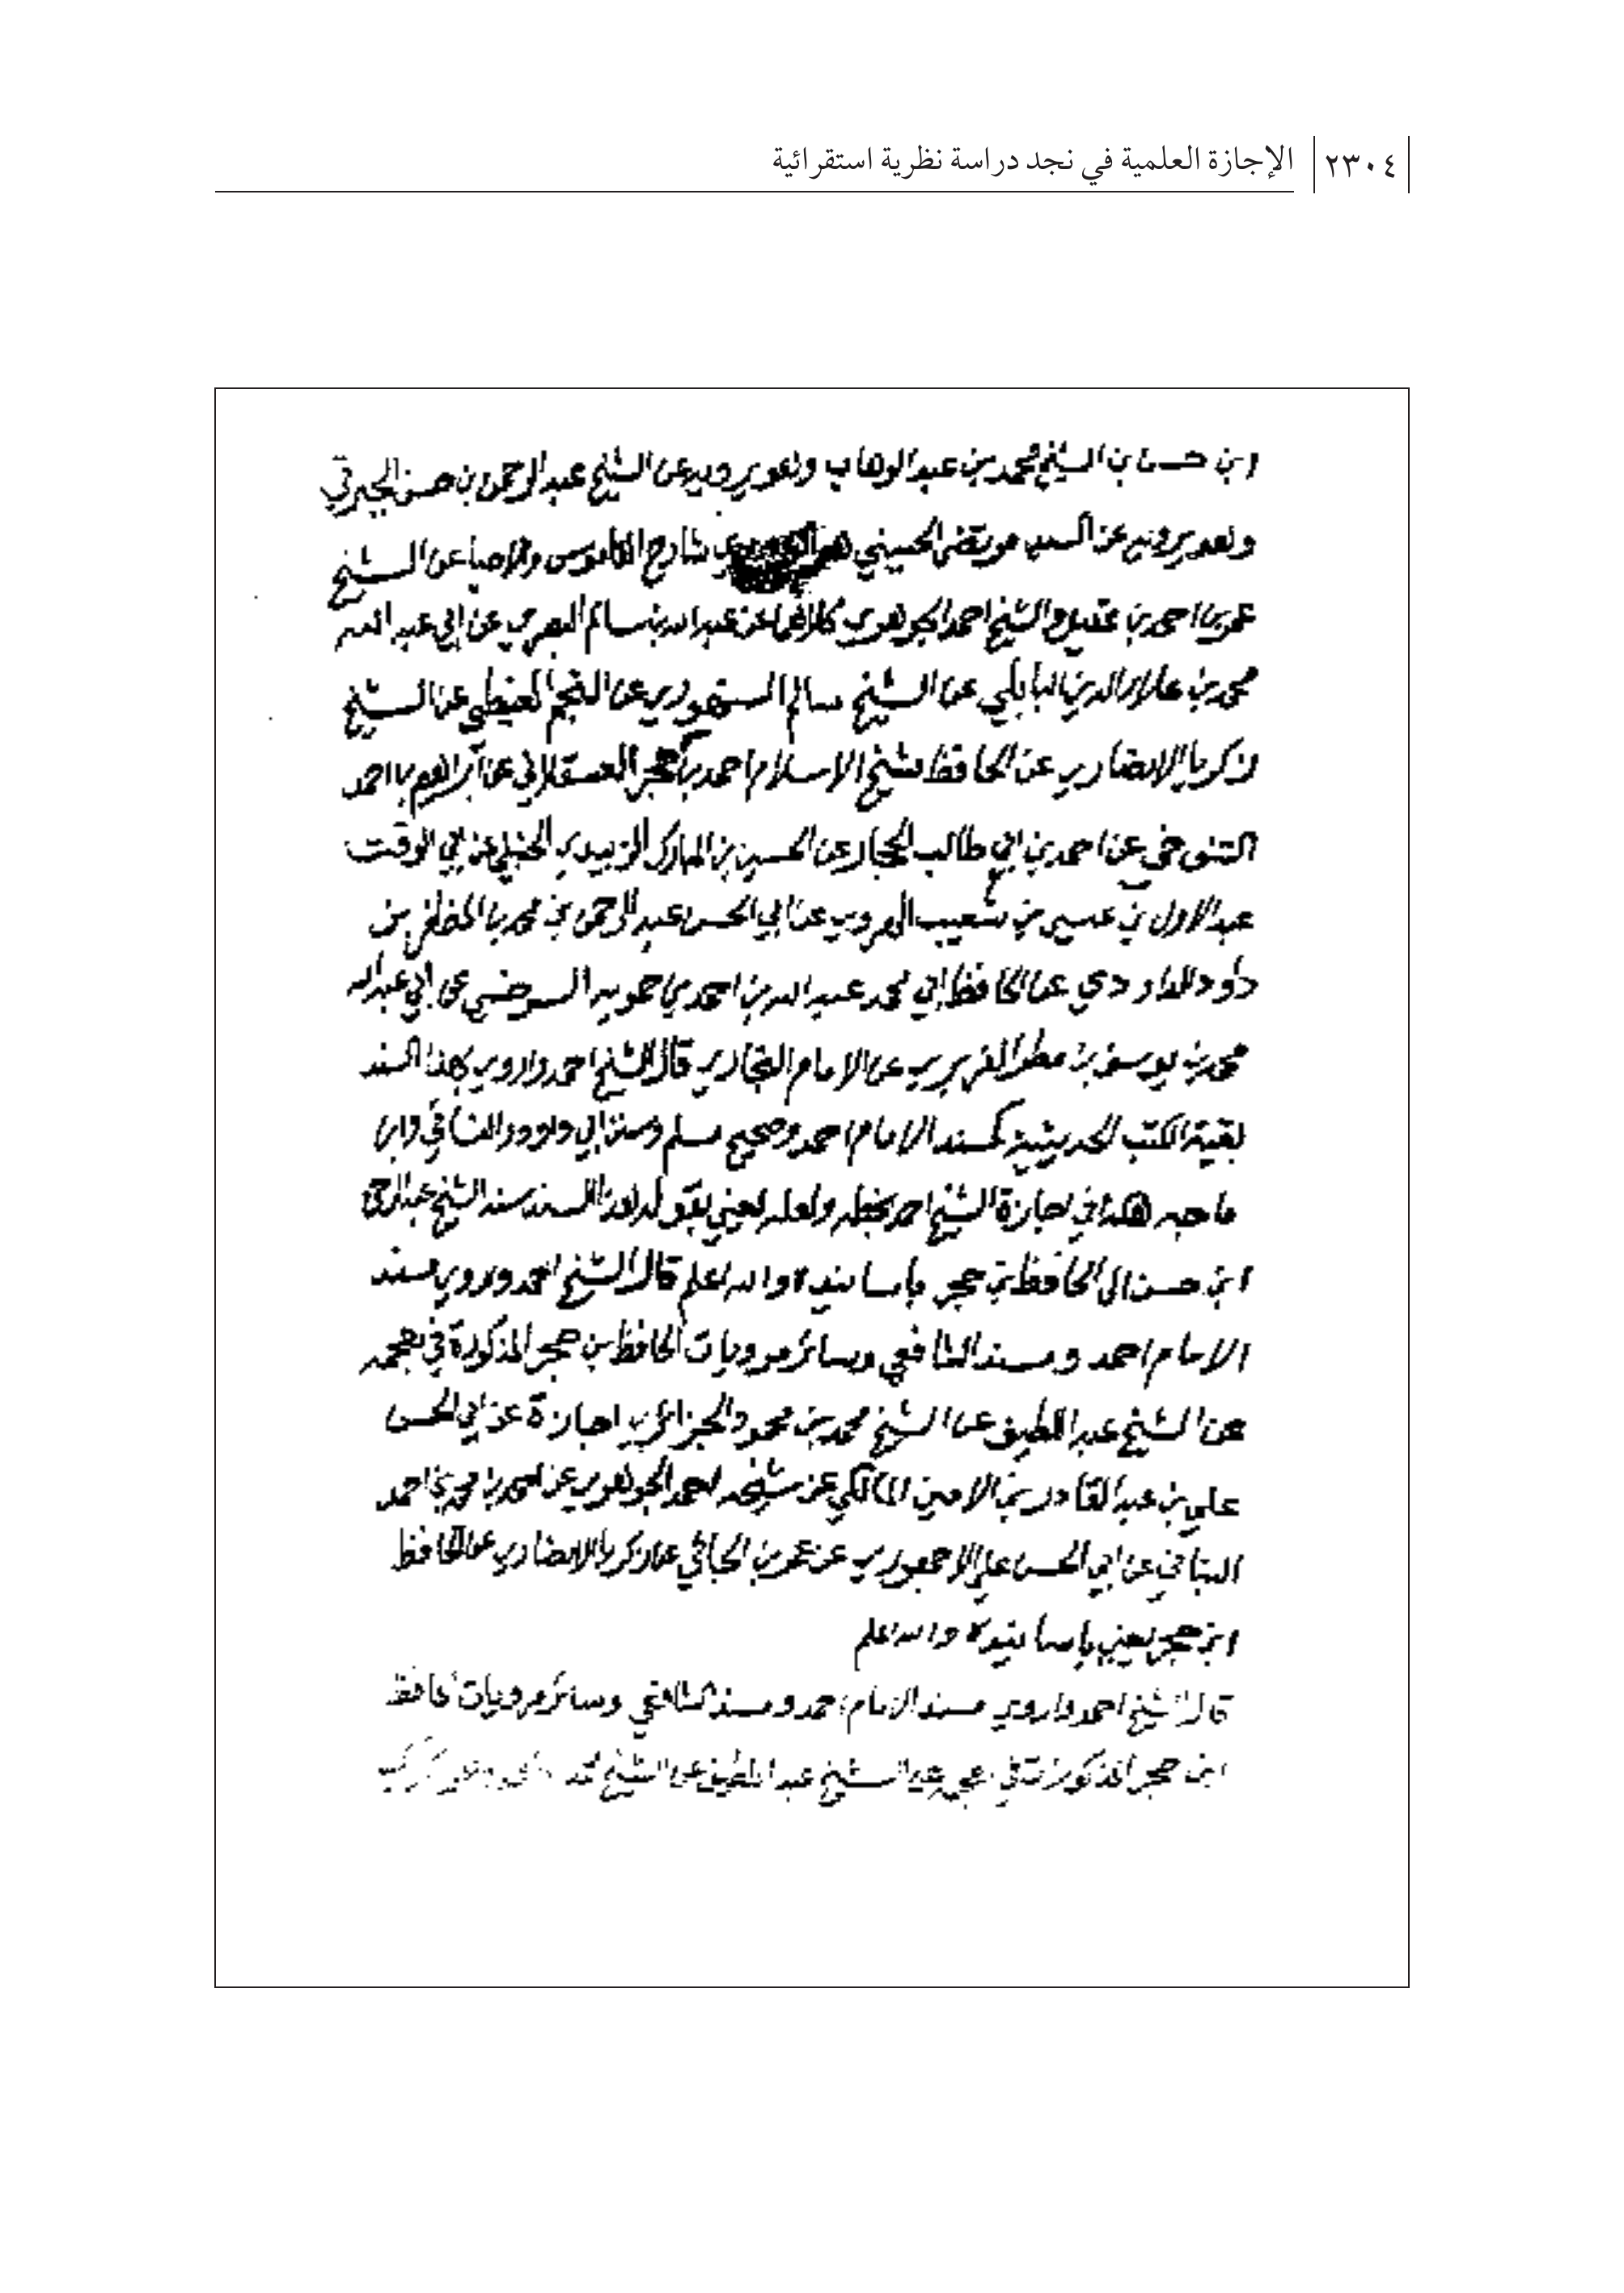 ٢٣٠٤ الإجازة العلمية في نجد دراسة نظرية استقرائية
ابن حسن بن الشيخ محمد بن عبد الوهاب وهو يرويه عن الشيخ عبد الرحمن بن حسن الجبرتي
وهو يرويه عن السيد مرتضى الحسيني شارح القاموس والاحيا عن الشيخ
عمر بن احمد بن عقيل والشيخ احمد الجوهري كلاهما عن عبد الله بن سالم البصري عن ابي عبد الله
محمد بن علاء الدين البابلي عن الشيخ سالم السنهوري عن النجم الغيطي عن الشيخ
زكريا الانصاري عن الحافظ شيخ الاسلام احمد بن حجر العسقلاني عن ابراهيم بن احمد
التنوخي عن احمد بن ابي طالب الحجار عن الحسين بن المبارك الزبيدي الحنبلي عن ابي الوقت
عبد الاول بن عيسى بن شعيب الهروي عن ابي الحسن عبد الرحمن بن محمد بن المظفر بن
داود الداودي عن الحافظ ابي محمد عبد الله بن احمد بن حمويه السرخسي عن ابي عبد الله
محمد بن يوسف بن مطر الفربري عن الامام البخاري قال الشيخ احمد واروي بهذا السند
بقية الكتب الحديثية كمسند الامام احمد وصحيح مسلم وسنن ابي داود والنسائي وابن
ماجه هكذا في اجازة الشيخ احمد بخطه ولعله يعني بقوله بهذا السند سند الشيخ عبد الرحمن
ابن حسن الى الحافظ بن حجر باسانيده والله اعلم قال الشيخ احمد واروي مسند
الامام احمد ومسند الشافعي وسائر مرويات الحافظ بن حجر المذكورة في معجمه
عن الشيخ عبد اللطيف عن الشيخ محمد بن محمود الجزائري اجازة عن ابي الحسن
علي بن عبد القادر بن الامين المالكي عن شيخه احمد الجوهري عن احمد بن محمد بن احمد
البنا عن ابي الحسن علي الاجهوري عن عمر بن الجائي عن زكريا الانصاري عن الحافظ
ابن حجر يعني باسانيده والله اعلم
قال الشيخ احمد واروي مسند الامام احمد ومسند الشافعي وسائر مرويات الحافظ
ابن حجر المذكورة في معجمه عن الشيخ عبد اللطيف عن الشيخ محمد